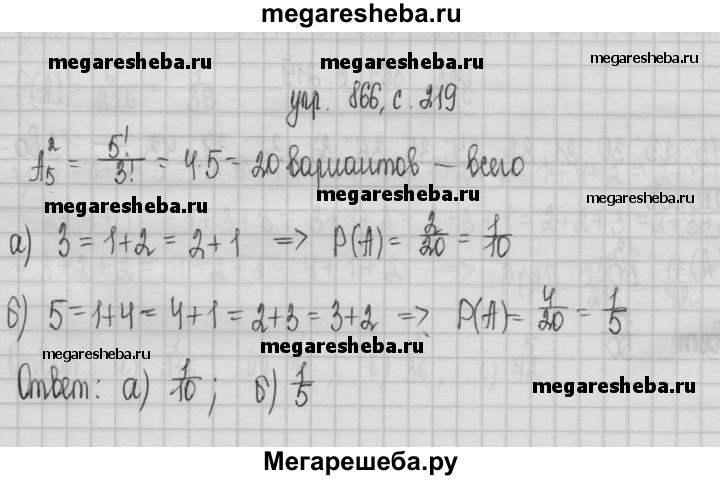 megaresheba.ru
megaresheba.ru megaresheba.ru megaresheba.ru
упр. 866, с. 219
A₅² = 5!/3! = 4·5 = 20 вариантов – всего
megaresheba.ru megaresheba.ru megaresheba.ru
а) 3 = 1+2 = 2+1 => P(A) = 2/20 = 1/10
б) 5 = 1+4 = 4+1 = 2+3 = 3+2 => P(A) = 4/20 = 1/5
megaresheba.ru megaresheba.ru megaresheba.ru
Ответ: а) 1/10; б) 1/5
Мегарешеба.ру